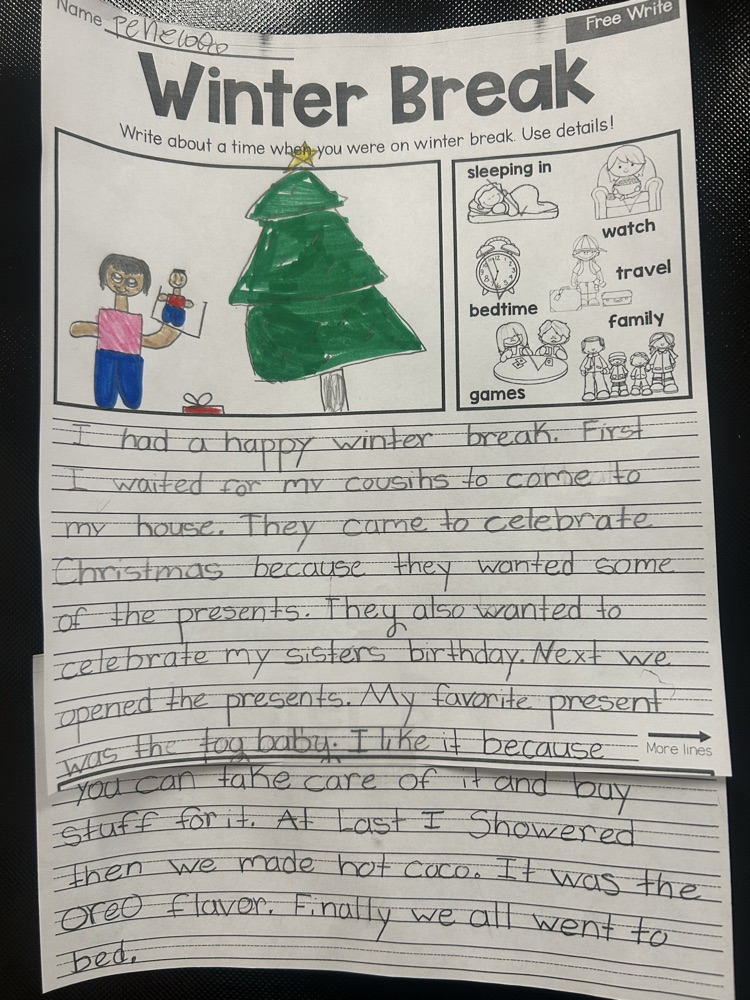 Name Penelope
Free Write
Winter Break
Write about a time when you were on winter break. Use details!
sleeping in
watch
travel
bedtime
family
games
I had a happy winter break. First
I waited for my cousins to come to
my house. They came to celebrate
Christmas because they wanted some
of the presents. They also wanted to
celebrate my sisters birthday. Next we
opened the presents. My favorite present
was the toy baby. I like it because
More lines
you can take care of it and buy
stuff for it. At Last I Showered
then we made hot coco. It was the
Oreo flavor. Finally we all went to
bed.